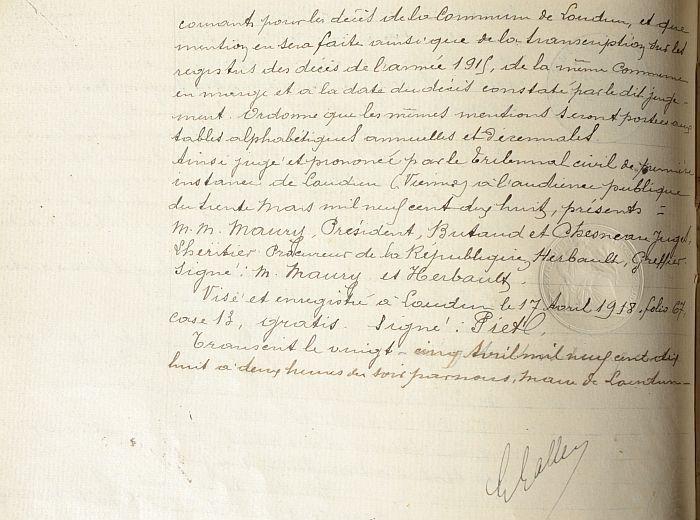 courant pour les décès de la Commune de Loudun, et que
mention en sera faite ainsi que de la transcription sur les
registres des décès de l'année 1915, de la même Commune
en marge et à la date du décès constaté par le dit juge-
ment. Ordonne que les mêmes mentions seront portées aux
tables alphabétiques annuelles et décennales
Ainsi jugé et prononcé par le Tribunal civil de première
instance de Loudun (Vienne) à l'audience publique
du trente Mars mil neuf cent dix huit, présents =
M.M. Maury, Président, Butaud et Chesneau Juges
Lhéritier Procureur de la République, Herbault, Greffier
Signé : M. Maury et Herbault.
Visé et enregistré à Loudun le 17 Avril 1918. folio 67.
case 13, gratis. Signé : Piet
Transcrit le vingt-cinq Avril mil neuf cent dix
huit à deux heures du soir par nous, Maire de Loudun-